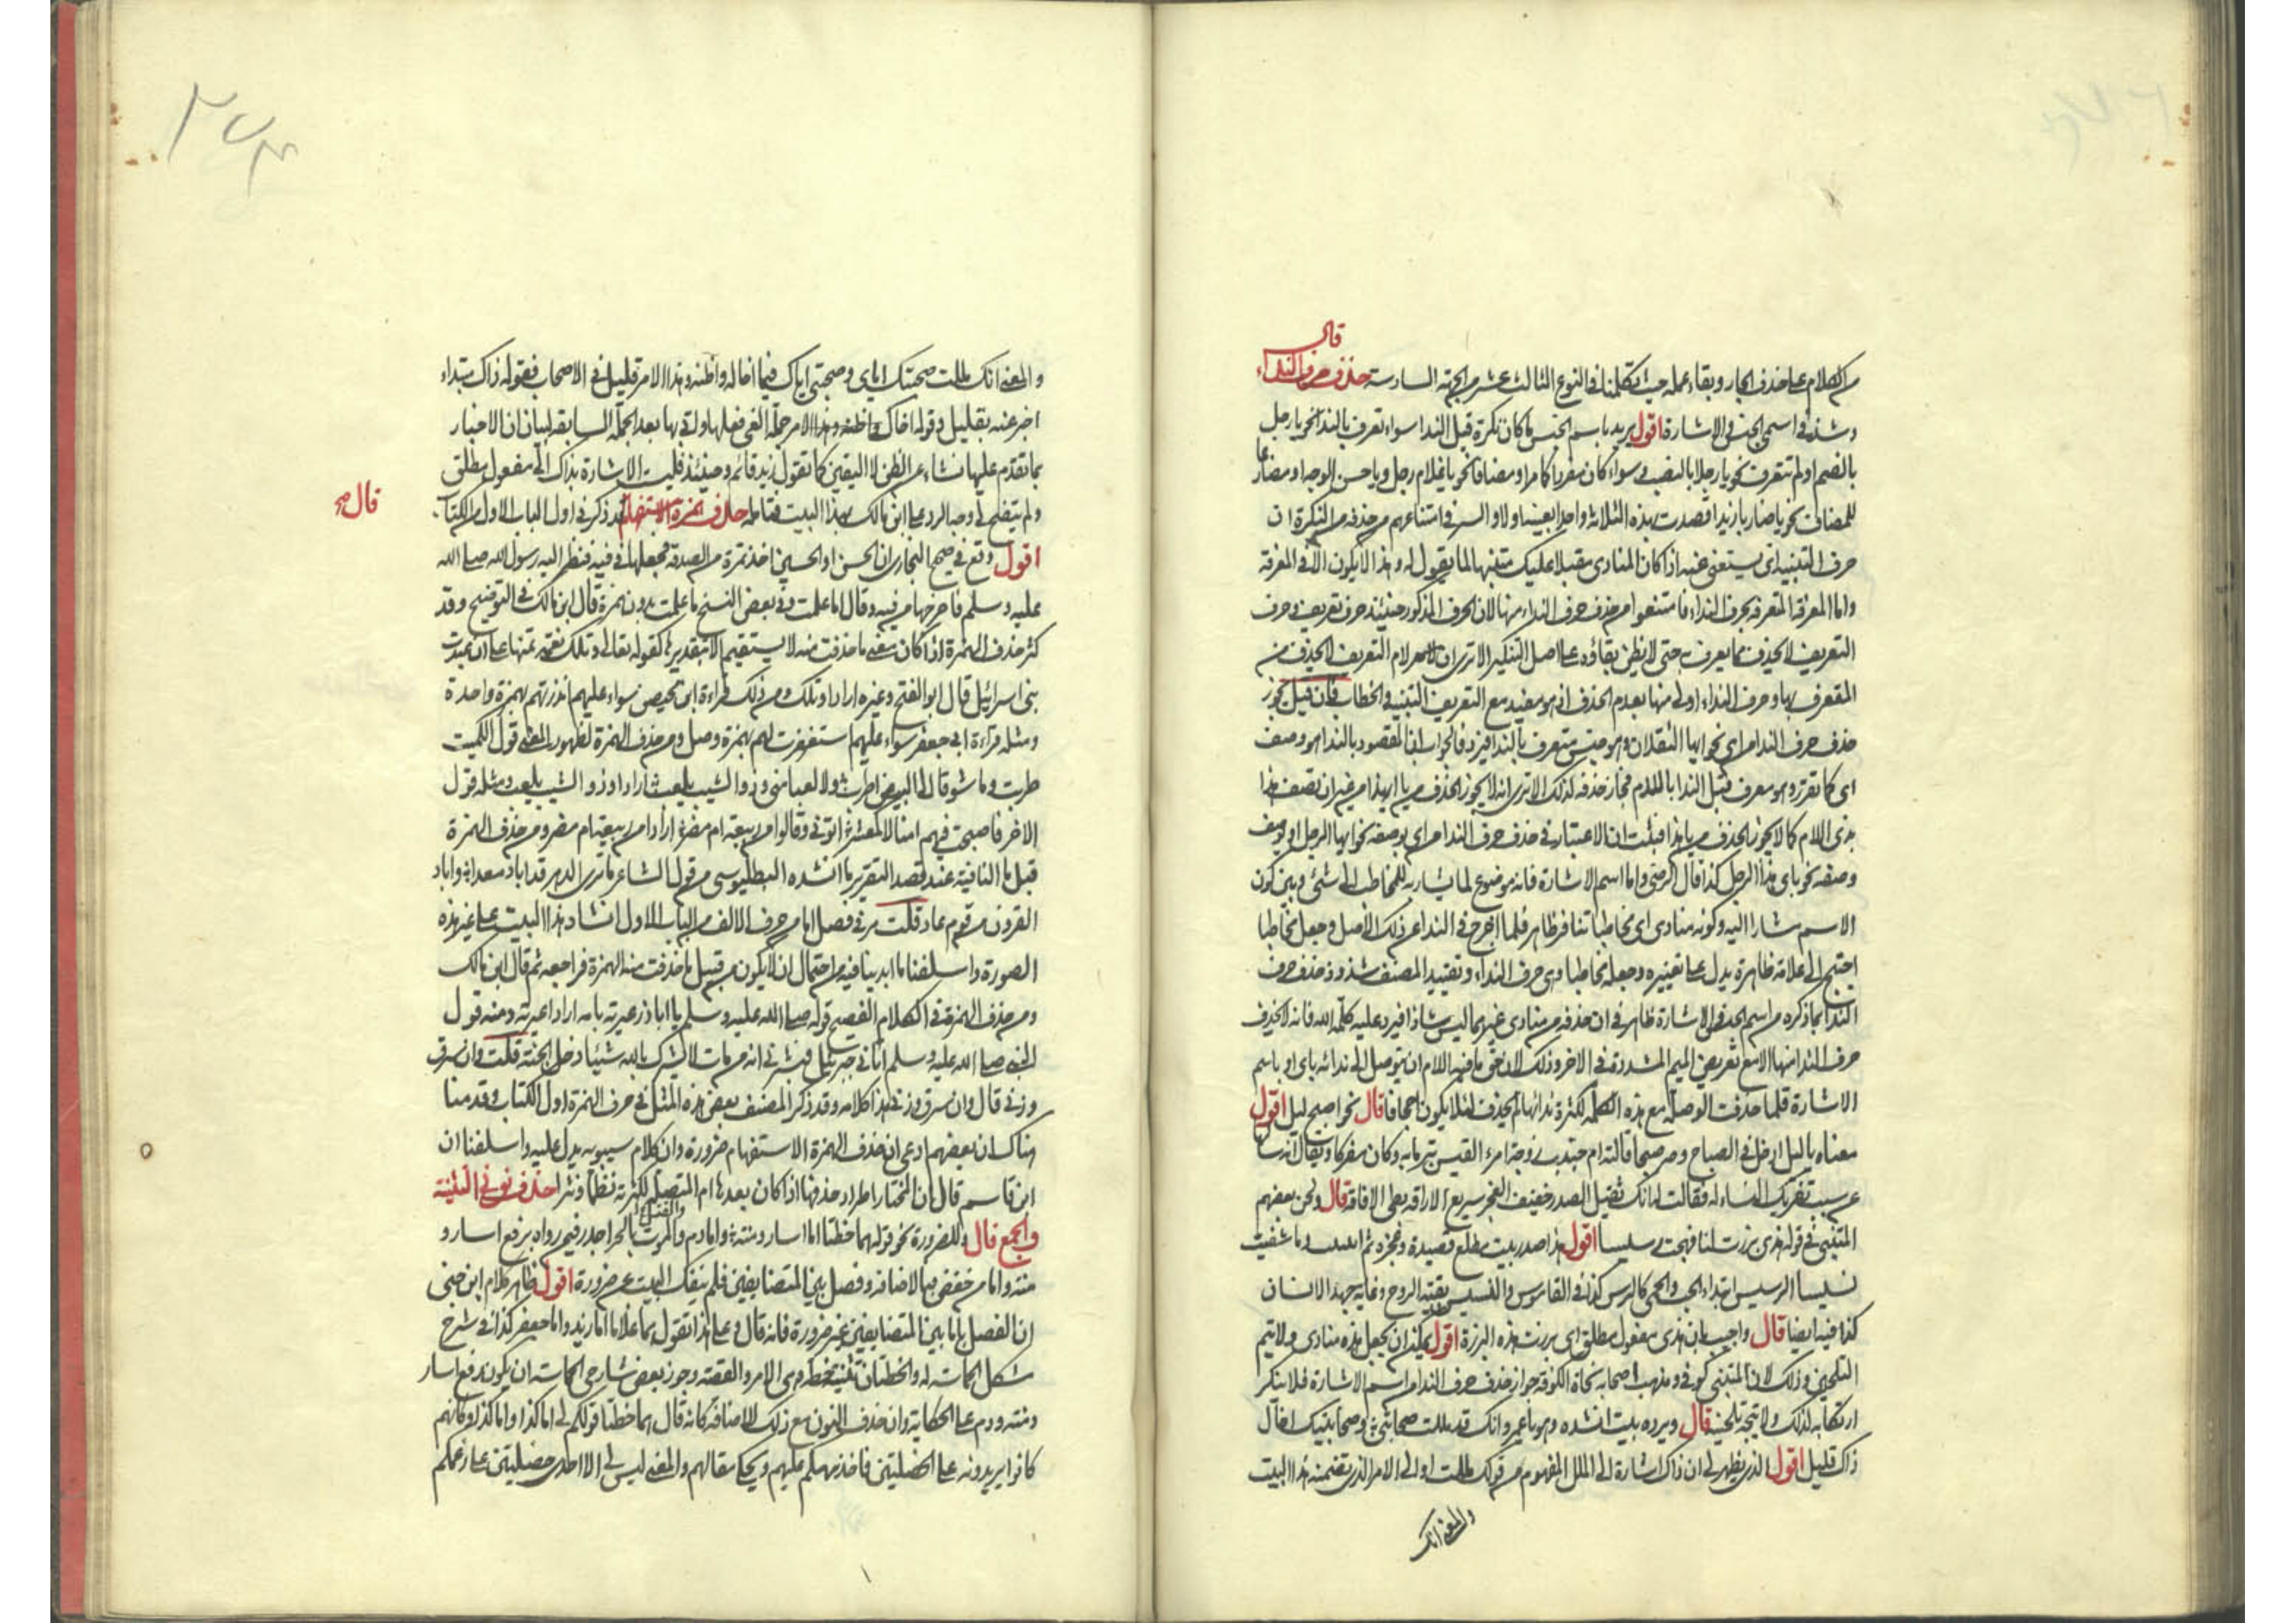 قال
من الكلام على حذف الجار وبقاء عمله حيث تكلمنا في النوع الثالث عشر من الجهة السادسة حذف حرف النداء
وشذ في اسمي الجنس والاشارة اقول يريد باسم الجنس ما كان نكرة قبل النداء سواء تعرف بالنداء نحو يا رجل
بالضم او لم يتعرف نحو يا رجلا بالنصب وسواء كان مفردا كما مر او مضافا نحو يا غلام رجل ويا حسن الوجه او مضارعا
للمضاف نحو يا ضاربا زيدا قصدت بهذه الثلاثة واحدا بعينه اولا والسر في امتناعهم من حذفه من النكرة ان
حرف التنبيه انما يستغنى عنه اذا كان المنادى مقبلا عليك متنبها لما يقول له وهذا لا يكون الا في المعرفة
واما المعرفة المتعرفة بحرف النداء فامتنعوا من حذف حرف النداء منها لان الحرف المذكور حينئذ حرف تعريف وحرف
التعريف لا يحذف مما يعرف به حتى لا يظن بقاؤه على اصل التنكير الا ترى ان لام التعريف لا يحذف من
المتعرف بها وحرف النداء اولى منها بعدم الحذف اذ هو مفيد مع التعريف التنبيه والخطاب فان قيل يجوز
حذف حرف النداء من اي نحو ايها الثقلان وهو جنس متعرف بالنداء فالجواب ان المقصود بالنداء هو وصف
اي كما تقرر وهو معرف قبل النداء باللام فجاز حذفه لذلك الا ترى انه لا يجوز الحذف من يا ايهذا من غير ان تصف هذا
بذي اللام كما لا يجوز الحذف من يا هذا فثبت ان الاعتبار في حذف حرف النداء من اي بوصفه نحو ايها الرجل او بوصف
وصفه نحو يا اي هذا الرجل كذا قال الرضي واما اسم الاشارة فانه موضوع لما يشار به للمخاطب الى شئ وبين كون
الاسم مشارا اليه وكونه منادى اي مخاطبا تنافر ظاهر فلما اخرج في النداء عن ذلك الاصل وجعل مخاطبا
احتيج الى علامة ظاهرة يدل على تغييره وجعله مخاطبا وهي حرف النداء وتقييد المصنف شذوذ حذف حرف
النداء بما ذكره من اسم الجنس والاشارة ظاهر في ان حذفه من منادى غيرهما ليس شاذا فيرد عليه كلمة الله فانه لا يحذف
حرف النداء منها الا مع تعويض الميم المشددة في الاخر وذلك لان حق ما فيه اللام ان يتوصل الى ندائه باي او باسم
الاشارة فلما حذفت الوصلة مع هذه الكلمة لكثرة ندائها لم يحذف لئلا يكون اجحافا قال نحو اصبح ليل اقول
معناه يا ليل ادخل في الصباح وصر صبحا قالته ام جندب زوجة امرء القيس تبرما به وكان مفركا ويقال انه سألها
عن سبب تفريك النساء له فقالت له انك ثقيل الصدر خفيف العجز سريع الاراقة بطى الافاقة قال ولحن بعضهم
المتنبي في قوله هذي برزت لنا فهجت رسيسا اقول هذا صدر بيت مطلع قصيدة وعجزه ثم انثنيت وما شفيت
نسيسا الرسيس ابتداء الحب والحمى كالرس كذا في القاموس والنسيس بقية الروح وغاية جهد الانسان
كذا فيه ايضا قال واجيب بان هذي مفعول مطلق اي برزت هذه البرزة اقول يمكن ان يجعل هذه منادى ولا يتم
التلحين وذلك لان المتنبي كوفي ومذهب اصحابه نحاة الكوفة جواز حذف حرف النداء من اسم الاشارة فلا ينكر
ارتكابه لذلك ولا يتجه تلحينه قال ويرده بيت انشده وهو يا عمرو انك قد مللت صحابتي وصحابتيك اخال
ذاك قليل اقول الذي يظهر لي ان ذاك اشارة الى الملل المفهوم من قولك مللت او الى الامر الذي تضمنه هذا البيت
والمعنى انك
والمعنى انك مللت صحبتك اياي وصحبتي اياك فيما اخاله واظنه وهذا الامر قليل في الاصحاب فقوله ذاك مبتداء
اخبر عنه بقليل وقوله اخاك واظنه وهذا الامر جملة الغي فعلها واتي بها بعد الجملة السابقة لبيان ان الاخبار
بما تقدم عليها نشاء عن الظن لا اليقين كما تقول زيد قائم وحينئذ فليست الاشارة بذاك الى مفعول مطلق
ولم يتضح لي وجه الرد على ابن مالك بهذا البيت فتامله حذف همزة الاستفهام قد ذكر في اول الباب الاول من الكتاب
قال
اقول وقع في صحيح البخاري ان الحسن او الحسين اخذ تمرة من الصدقة فجعلها في فيه فنظر اليه رسول الله صلى الله
عليه وسلم فاخرجها من فيه وقال اما علمت وفي بعض النسخ ما علمت بدون همزة قال ابن مالك في التوضيح وقد
كثر حذف الهمزة اذا كان معنى ما حذفت منه لا يستقيم الا بتقديرها كقوله تعالى وتلك نعمة تمنها على ان عبدت
بني اسرائيل قال ابو الفتح وغيره اراد او تلك ومن ذلك قراءة ابن محيصن سواء عليهم انذرتهم بهمزة واحدة
ومثله قراءة ابي جعفر سواء عليهم استغفرت لهم بهمزة وصل ومن حذف الهمزة لظهور المعنى قول الكميت
طربت وما شوقا الى البيض اطرب ولا لعبا مني وذو الشيب يلعب اراد او ذو الشيب يلعب ومثله قول
الاخر فاصبحت فيهم امنا لا كمعشر اتوني وقالوا من ربيعة ام مضر اراد امن ربيعة ام مضر ومن حذف الهمزة
قبل ما النافية عند قصد التقرير ما انشده البطليوسي من قول الشاعر ما ترى الدهر قد اباد معدا واباد
القرون من قوم عاد قلت مر في فصل اما من حرف الالف من الباب الاول انشاد هذا البيت على غير هذه
الصورة واسلفنا ما ابدينا فيه من احتمال ان لا يكون من قبيل ما حذفت منه الهمزة فراجعه ثم قال ابن مالك
ومن حذف الهمزة في الكلام الفصيح قوله صلى الله عليه وسلم يا ابا ذر عيرته بامه اراد اعيرته ومنه قول
النبي صلى الله عليه وسلم اتاني جبريل فبشرني انه من مات لا يشرك بالله شيئا دخل الجنة قلت وان سرق
وزنى قال وان سرق وزنى هذا كلامه وقد ذكر المصنف بعض هذه المثل في حرف الهمزة اول الكتاب وقدمنا
هناك ان بعضهم ادعى ان حذف الهمزة الاستفهام ضرورة وان كلام سيبويه يدل عليه واسلفنا ان
ابن قاسم قال ان المختار اطراد حذفها اذا كان بعدها ام المتصلة لكثرته نظما ونثرا حذف نوني التثنية
والجمع قال وللضرورة نحو قوله هما خطتا اما اسار ومنة واما دم والقتل بالحر اجدر فيمن رواه برفع اسار و
منة واما من خفض فبالاضافة وفصل بين المتضايفين فلم ينفك البيت عن ضرورة اقول ظاهر كلام ابن جني
ان الفصل باما بين المتضايفين غير ضرورة فانه قال وعلى هذا تقول هما غلاما اما زيد واما جعفر كذا في شرح
مشكل الحماسة له والخطتان تثنية خطة وهي الامر والقصة وجوز بعض شارحي الحماسة ان يكون رفع اسار
ومنة ودم على الحكاية وان حذف النون مع ذلك للاضافة كانه قال هما خطتا قولكم لي اما كذا واما كذا وكانهم
كانوا يريدونه على الخصلتين فاخذ يتهكم عليهم ويحكي مقالهم والمعنى ليس لي الا احدى خصلتين على زعمكم